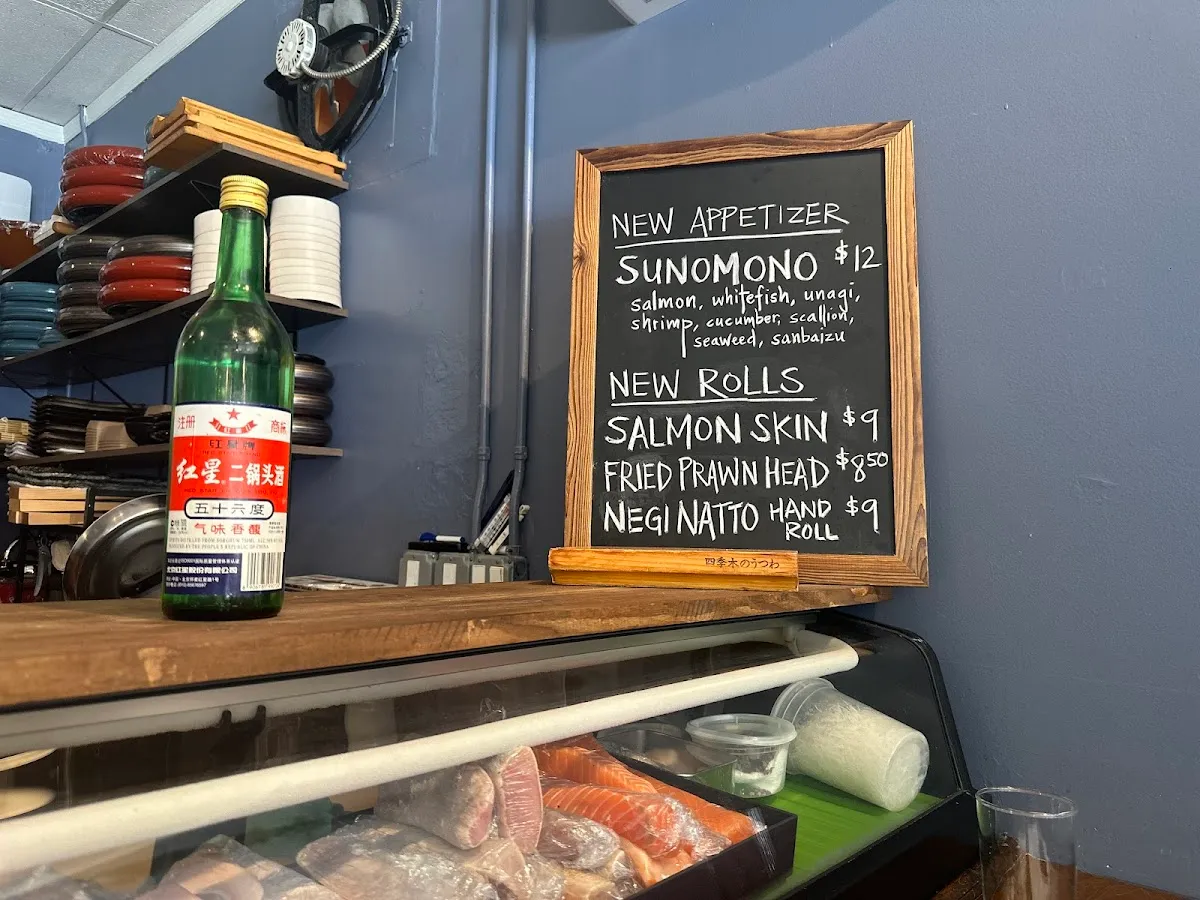 注册 商标
红星牌
红星 二锅头酒
五十六度
气味香馥
NEW APPETIZER
SUNOMONO $12
salmon, whitefish, unagi,
shrimp, cucumber, scallion,
seaweed, sanbaizu
NEW ROLLS
SALMON SKIN $9
FRIED PRAWN HEAD $850
NEGI NATTO HAND ROLL $9
四季木のうつわ